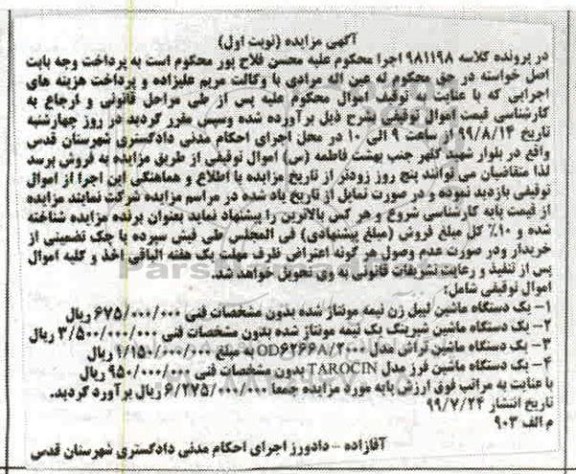 آگهی مزایده (نوبت اول)
در پرونده کلاسه ۹۸۱۱۹۸ اجرا محکوم علیه محسن فلاح پور محکوم است به پرداخت وجه بابت
اصل خواسته در حق محکوم له عین اله مرادی با وکالت مریم علیزاده و پرداخت هزینه های
اجرایی که با عنایت به توقیف اموال محکوم علیه پس از طی مراحل قانونی و ارجاع به
کارشناسی قیمت اموال توقیفی بشرح ذیل برآورده شده وسپس مقرر گردید در روز چهارشنبه
تاریخ ۹۹/۸/۱۴ از ساعت ۹ الی ۱۰ در محل اجرای احکام مدنی دادگستری شهرستان قدس
واقع در بلوار شهید کلهر جنب بهشت فاطمه (س) اموال توقیفی از طریق مزایده به فروش برسد
لذا متقاضیان می توانند پنج روز زودتر از تاریخ مزایده با اطلاع و هماهنگی این اجرا از اموال
توقیفی بازدید نموده و در صورت تمایل از تاریخ یاد شده در مراسم مزایده شرکت نمایند مزایده
از قیمت پایه کارشناسی شروع و هر کس بالاترین را پیشنهاد نماید بعنوان برنده مزایده شناخته
شده و ۱۰% کل مبلغ فروش (مبلغ پیشنهادی) فی المجلس طی فیش سپرده یا چک تضمینی از
خریدار ودر صورت عدم وصول هر گونه اعتراض ظرف مهلت یک هفته الباقی اخذ و کلیه اموال
پس از تنفیذ و رعایت تشریفات قانونی به وی تحویل خواهد شد.
اموال توقیفی شامل:
۱- یک دستگاه ماشین لیبل زن نیمه مونتاژ شده بدون مشخصات فنی ۶۷۵/۰۰۰/۰۰۰ ریال
۲- یک دستگاه ماشین شیرینگ پک نیمه مونتاژ شده بدون مشخصات فنی ۳/۵۰۰/۰۰۰/۰۰۰ ریال
۳- یک دستگاه ماشین تراش مدل OD۶۲۶۶A/۲۰۰۰ به مبلغ ۱/۱۵۰/۰۰۰/۰۰۰ ریال
۴- یک دستگاه ماشین فرز مدل TAROCIN بدون مشخصات فنی ۹۵۰/۰۰۰/۰۰۰ ریال
با عنایت به مراتب فوق ارزش پایه مورد مزایده جمعا ۶/۲۷۵/۰۰۰/۰۰۰ ریال برآورد گردید.
تاریخ انتشار ۹۹/۷/۲۴
م الف ۹۰۳
آقازاده - دادورز اجرای احکام مدنی دادگستری شهرستان قدس